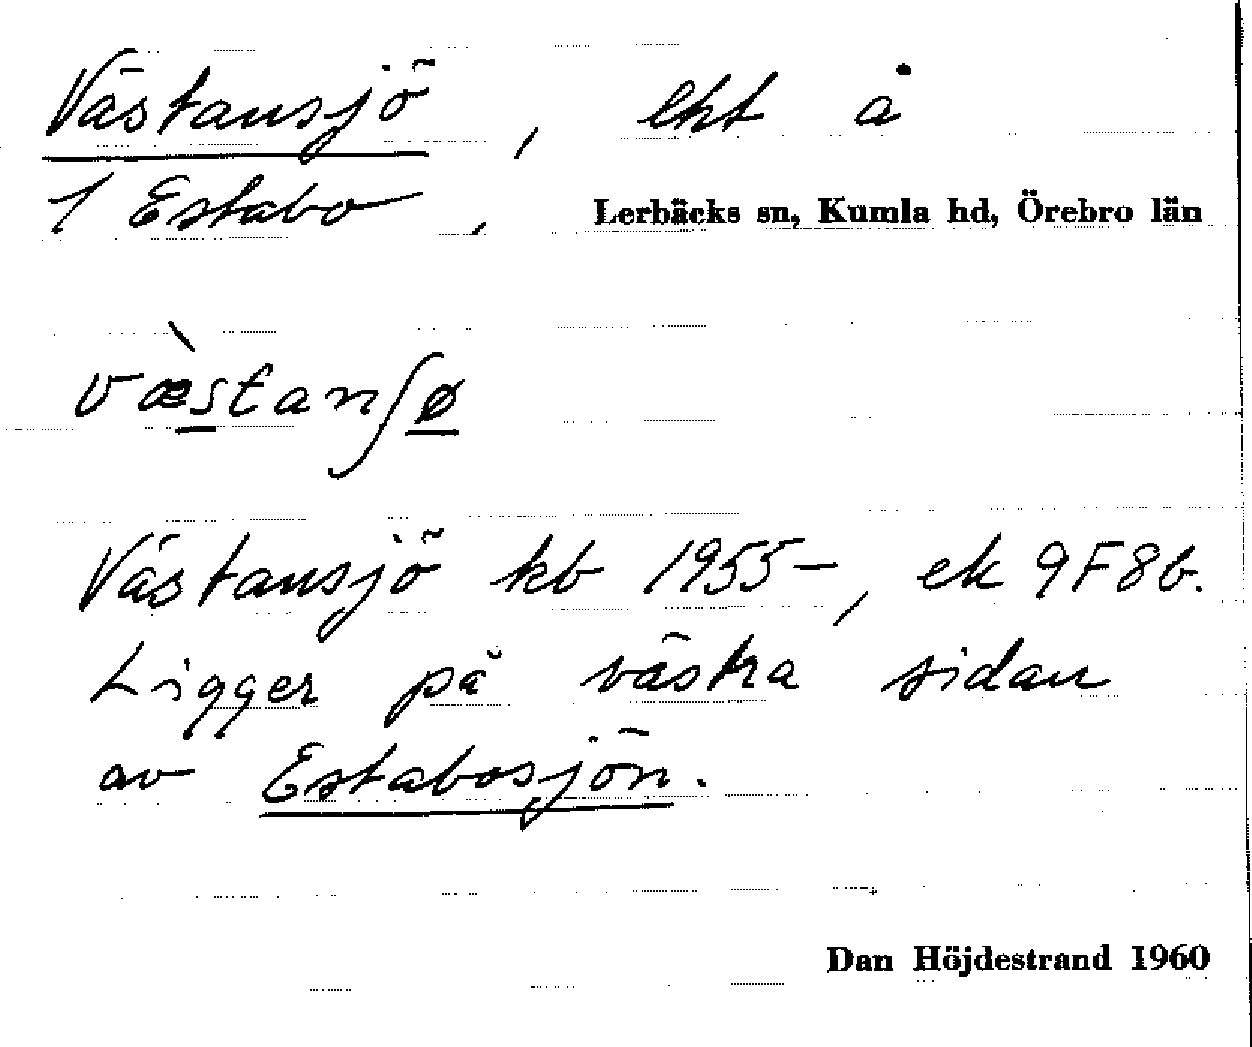 Västansjö, lht å
1 Estabo, Lerbäcks sn, Kumla hd, Örebro län
væ̀stanʃø
Västansjö kb 1955–, ek 9F8b.
Ligger på västra sidan
av Estabosjön.
Dan Höjdestrand 1960